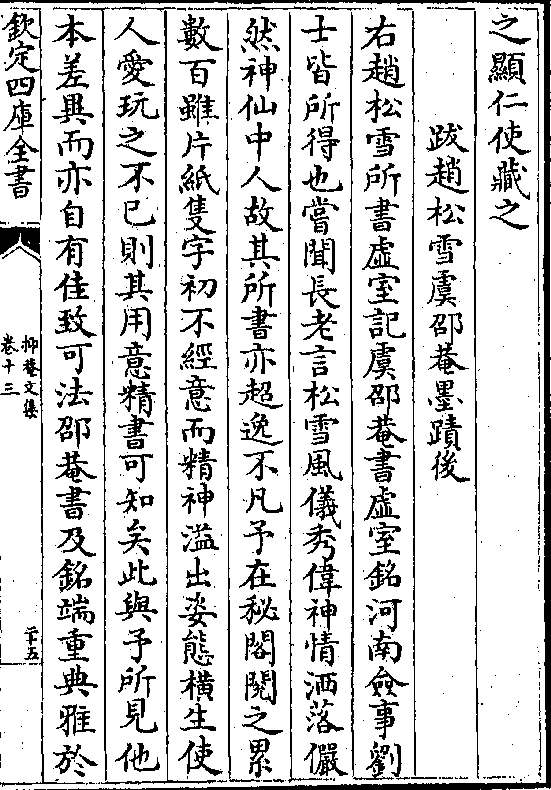 之顯仁使藏之
跋趙松雪虞邵菴墨蹟後
右趙松雪所書虛室記虞邵菴書虛室銘河南僉事劉
士皆所得也嘗聞長老言松雪風儀秀偉神情洒落儼
然神仙中人故其所書亦超逸不凡予在秘閣閱之累
數百雖片紙隻字初不經意而精神溢出姿態橫生使
人愛玩之不已則其用意精書可知矣此與予所見他
本差異而亦自有佳致可法邵菴書及銘端重典雅於
欽定四庫全書
抑菴文集
卷十三
二十五